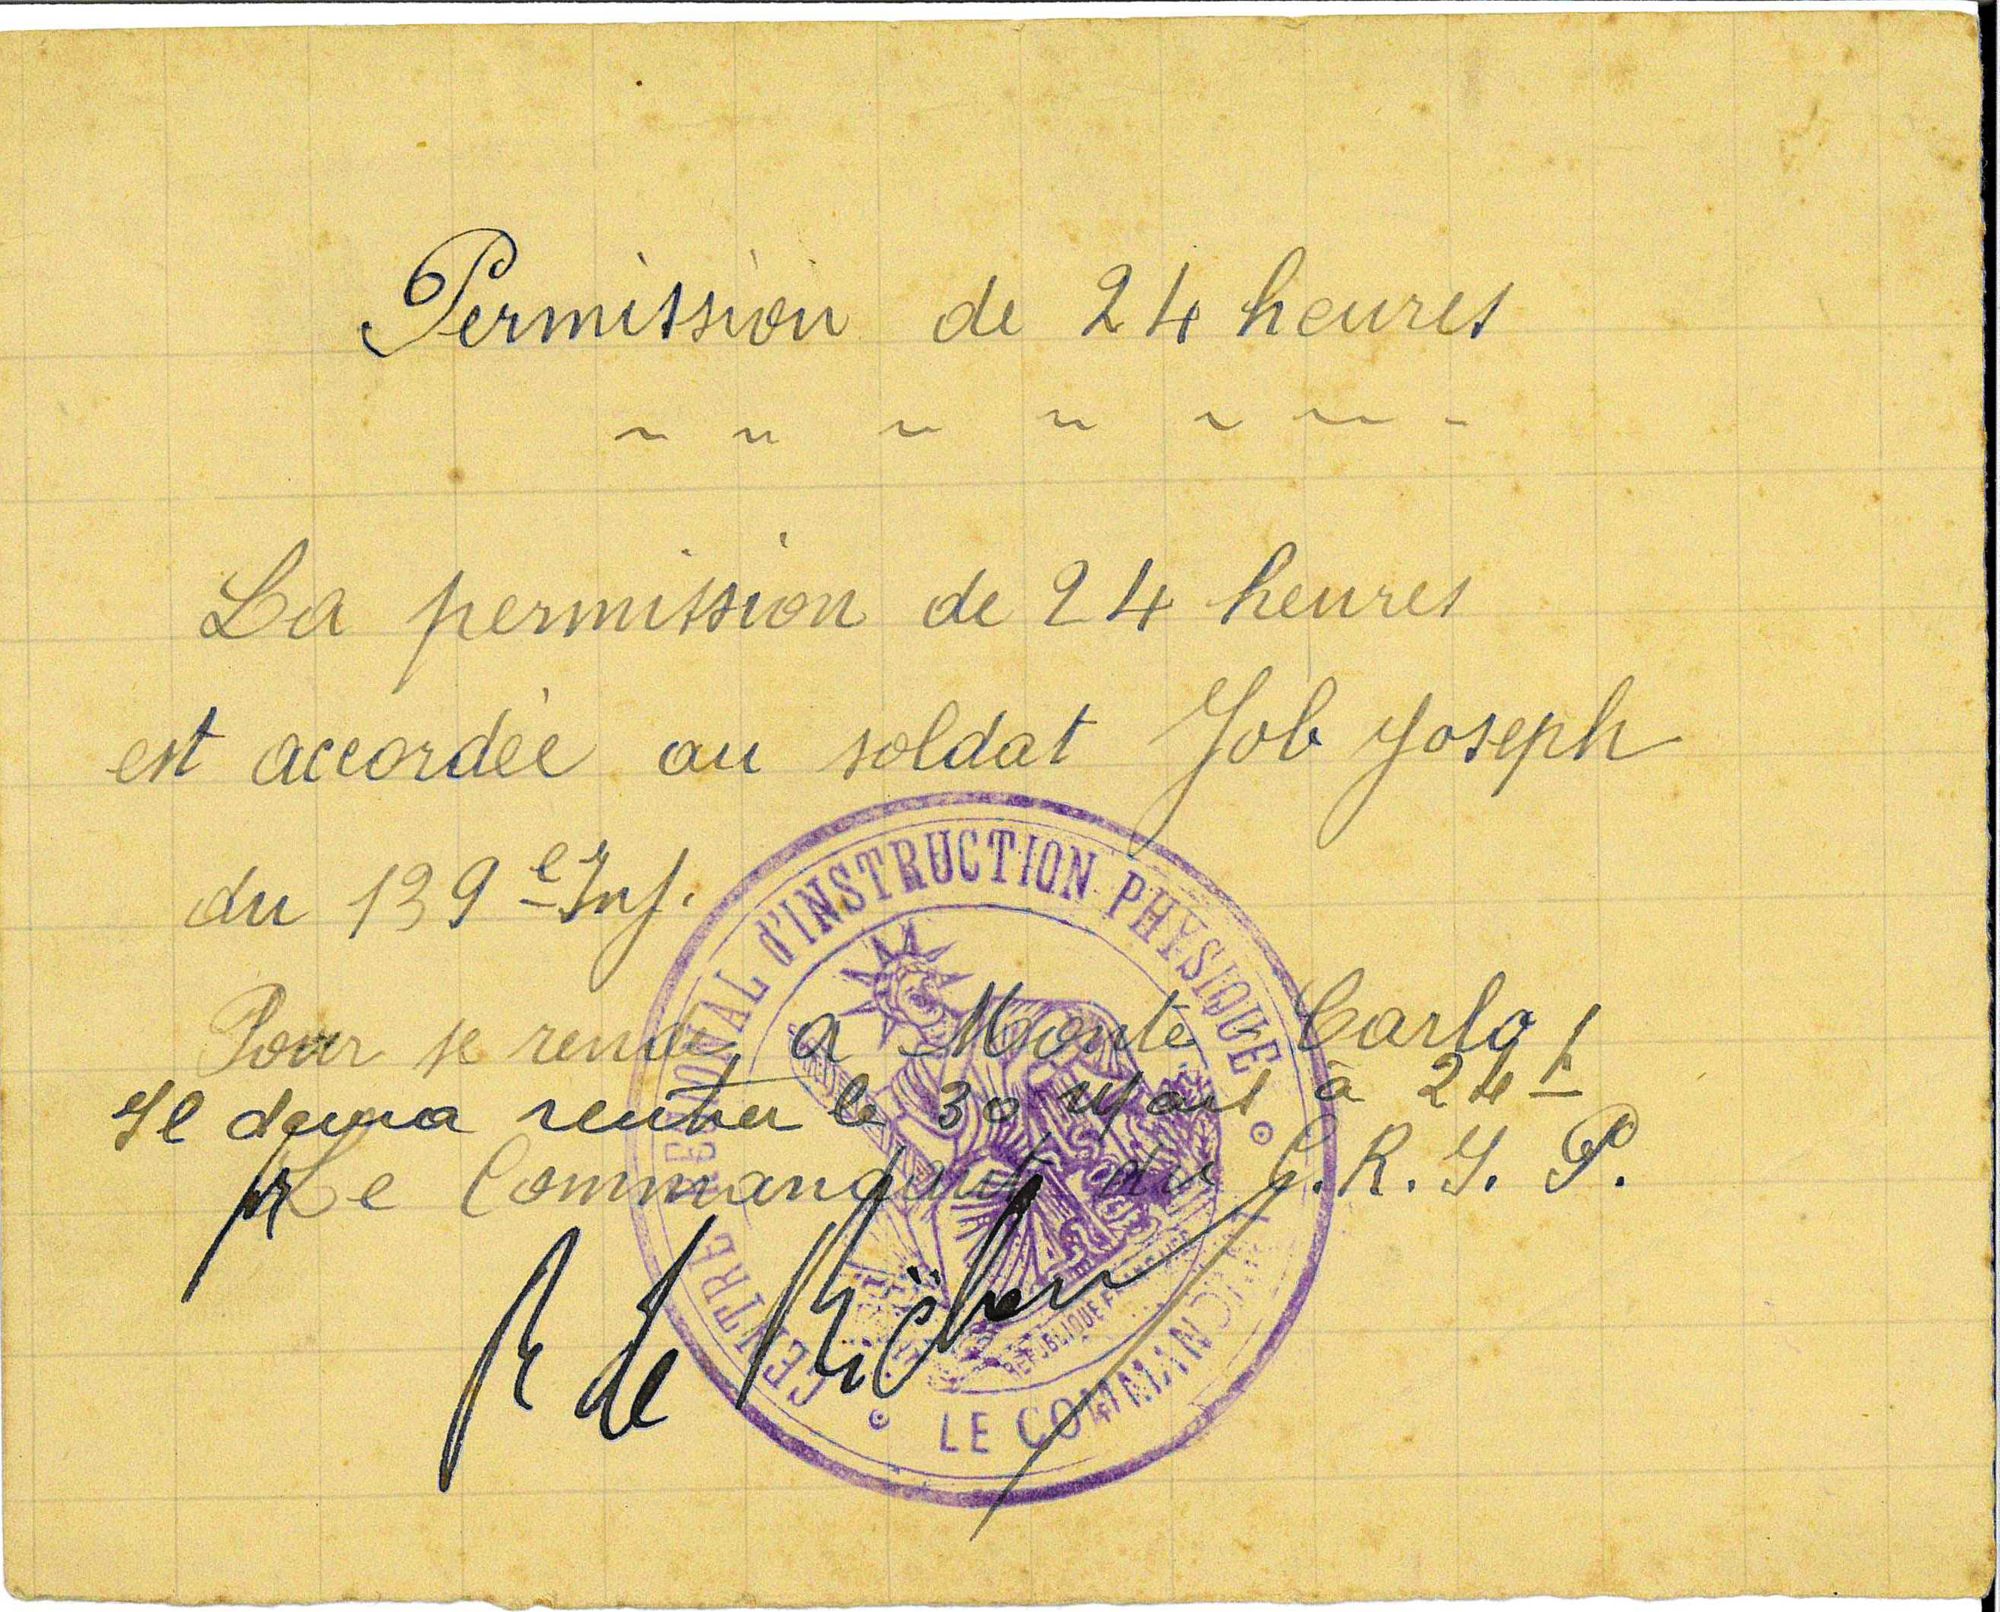 Permission de 24 heures
La permission de 24 heures
est accordée au soldat Job Joseph
du 139e Inf.
Pour se rendre a Monte Carlo
Il devra rentrer le 30 Mars à 24h
pr Le Commandant du C.R.I.P.
R de
CENTRE REGIONAL d'INSTRUCTION PHYSIQUE
REPUBLIQUE FRANÇAISE
LE COMMANDANT